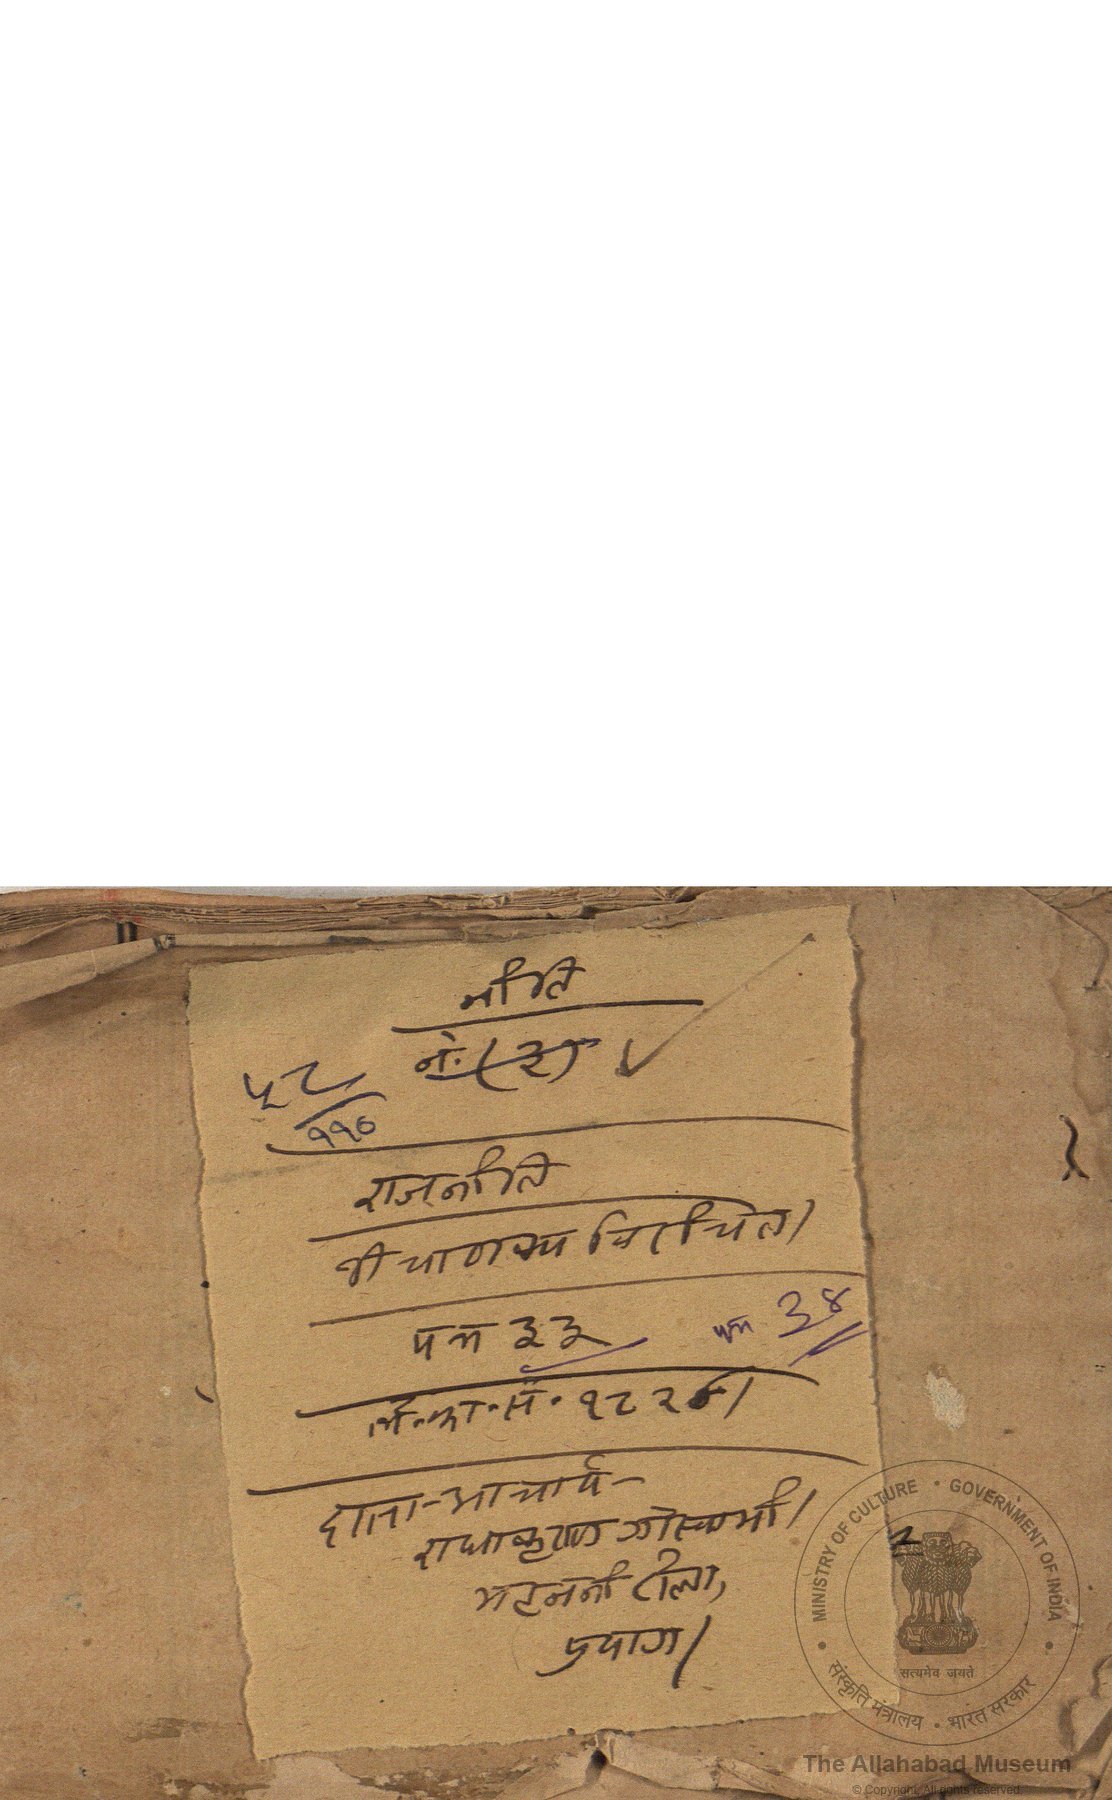 नीति
नं. (३)
५८
११०
राजनीति
श्री चाणक्य विरचित।
पत्र ३३
पत्र ३४
ले.का.सं. १८२८।
दाता-आचार्य-
राधाकृष्ण गोस्वामी।
महाजनी टोला,
प्रयाग।
MINISTRY OF CULTURE • GOVERNMENT OF INDIA
सत्यमेव जयते
संस्कृति मंत्रालय • भारत सरकार
The Allahabad Museum
© Copyright. All rights reserved.